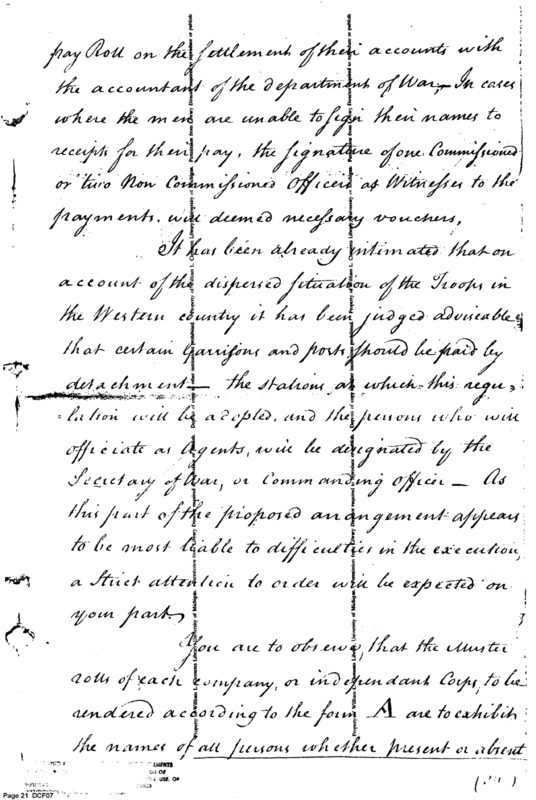 pay Roll on the settlement of their accounts with
the accountant of the department of War,— In cases
where the men are unable to sign their names to
receipts for their pay, the signature of one Commissioned
or two Non Commissioned Officers as Witnesses to the
payments. will deemed necessary vouchers,
It has been already intimated that on
account of the dispersed situation of the Troops in
the Western country it has been judged adviseable
that certain Garrisons and posts should be paid by
detachment— the stations at which this regu=
=lation will be adopted, and the persons who will
officiate as Agents, will be designated by the
Secretary of War, or Commanding Officer — As
this part of the proposed arrangement appears
to be most liable to difficulties in the execution,
a Strict attention to order will be expected on
your part,
You are to observe, that the Muster
rolls of each company, or independant Corps, to be
rendered according to the form A are to exhibit
the names of all persons whether present or absent
Page 21 DCF07